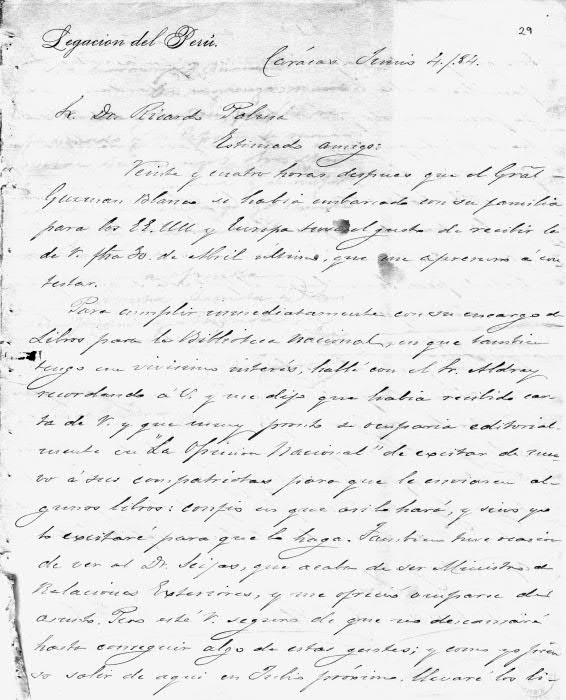 29
Legacion del Perú.
Carácas Junio 4/84.
Sr. Dr. Ricardo Palma
Estimado amigo:
Veinte y cuatro horas despues que el Gral
Guzman Blanco se habia embarcado con su familia
para los EE. UU. y Europa tuve el gusto de recibir la
de V. fha 30. de Abril último, que me apresuro á con-
testar.
Para cumplir inmediatamente con su encargo de
Libros para la Biblioteca Nacional, en que tambien
tengo un vivisimo interés, hablé con el Sr. Aldrey
recordando á V. y me dijo que habia recibido car-
ta de V. y que muy pronto se ocuparia editorial-
mente en "La Opinion Nacional" de excitar de nue-
vo á sus compatriotas para que le enviasen al-
gunos libros: confio en que asi lo hará, y sino yo
lo excitaré para que lo haga. Tambien tuve ocasion
de ver al Dr. Seijas, que acaba de ser Ministro de
Relaciones Exteriores, y me ofreció ocuparse del
asunto. Pero esté V. seguro de que no descansaré
hasta conseguir algo de estas gentes; y como yo pien-
so salir de aqui en Julio próximo, llevaré los li-